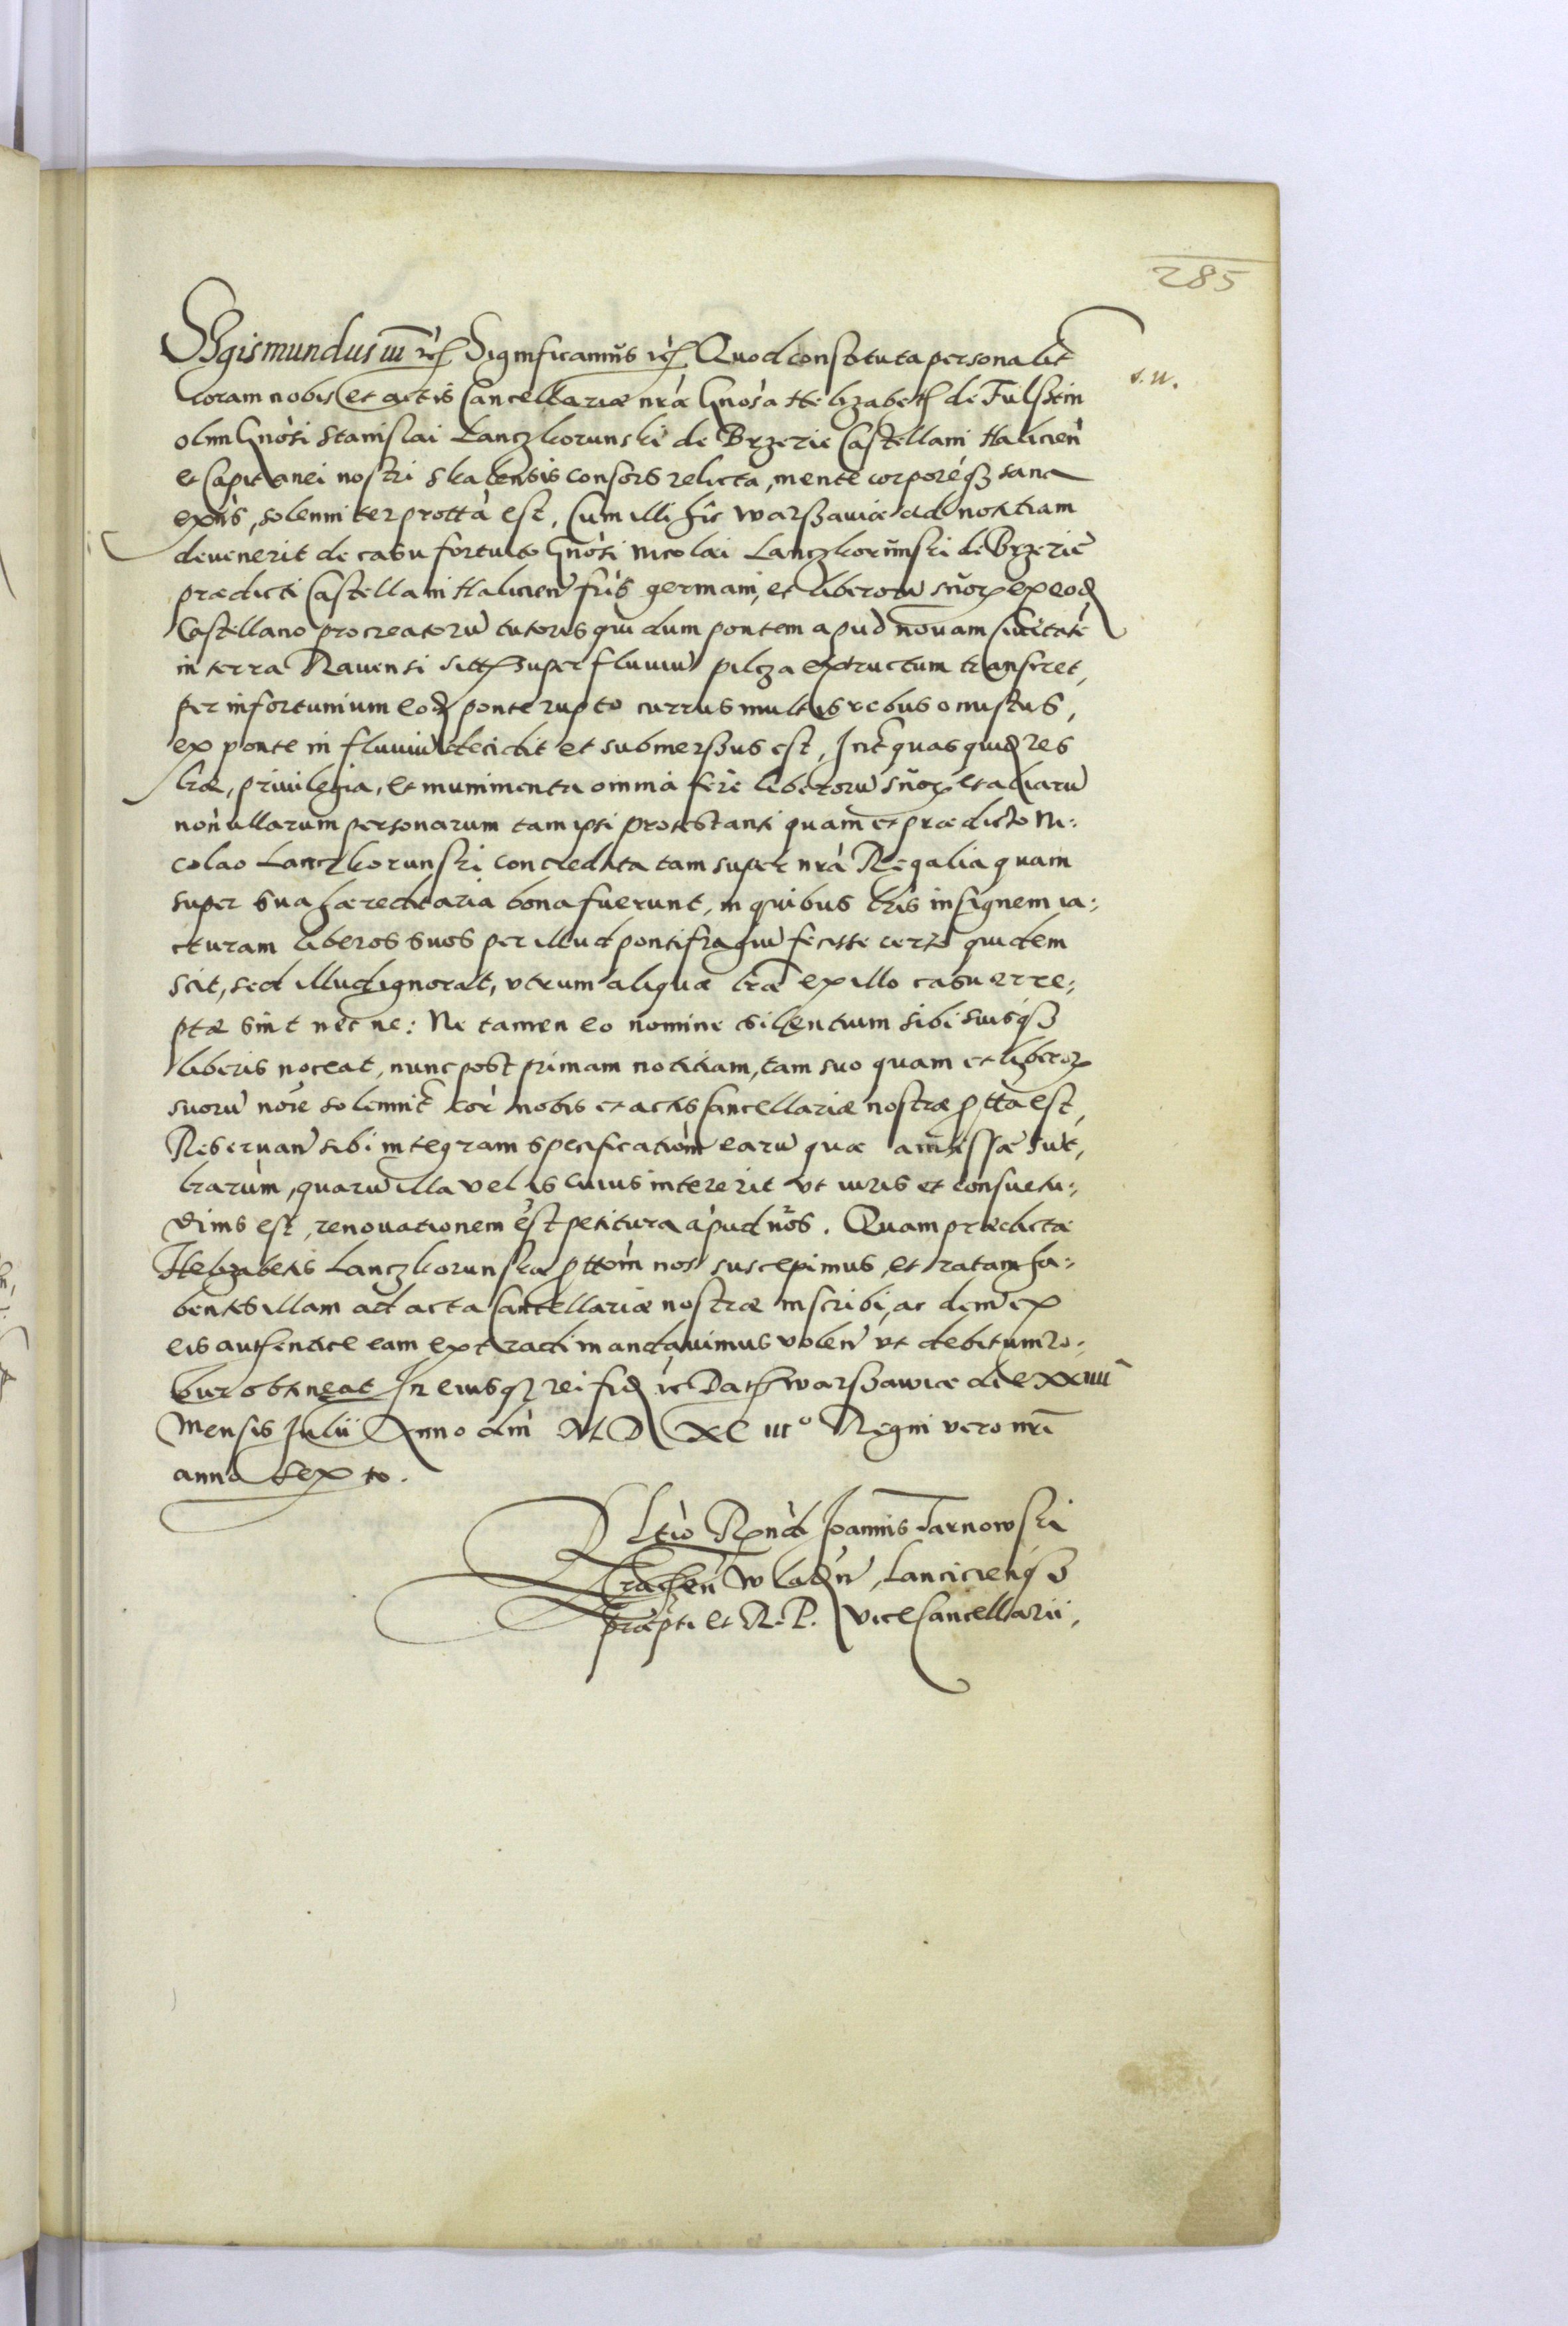 285
Sigismundus III etc. Significamus etc. Quod constituta personalit
coram nobis et actis Cancellariæ nrã Gnosa Helizabeth de Fulstin
s. n.
olim Gnosi Stanislai Lanczkorunski de Brzezie Castellani Halicień
et Capitanei nostri Skalensis consors relicta, mente corporeq sana
exñs, solenniter protta est, Cum illi hic Warszaviæ ad notitiam
devenerit de casu fortuito Gnosi Nicolai Lanczkorunski de Brzezie
prædicti Castellani Halicień frïs germani, et liberorū suor ex eod
Castellano procreatorū tutoris qui dum pontem apud novam Civitatē
in terra Ravensi sitt super fluuiū pilcza extructum transiret,
per infortunium eod ponte rupto currus multis rebus onustus,
ex ponte in fluuiū decidit et submersus est, Int quas quid res
lræ, priuilegia, et munimenta omnia fere liberorū suor et aliarū
nonullarum personarum tam ipsi protestanti quam et prædicto Ni:
colao Lanczkorunski concredita tam super nrã Regalia quam
super sua hæreditaria bona fuerunt, in quibus lris insignem ia:
cturam liberos suos per illud pontifragiū fecisse certo quidem
scit, sed illud ignorat, vtrum aliquæ lræ ex illo casu erre:
ptæ sint nec ne: Ne tamen eo nomine silentium sibi suisq
liberis noceat, nunc post primam notitiam, tam suo quam et liberor
suorū noie solennit cor nobis et actis Cancellariæ nostræ ptta est,
Reseruan sibi integram specificationem earū quæ amissæ sūt,
lrarum, quarū illa vel is cuius intererit vt iuris et consuetu:
dinis est, renouationem est petitura apud nos. Quam prædictæ
Helizabetis Lanczkorunska pttom nos suscepimus, et ratam ha:
bentes illam ad acta Cancellariæ nostræ inscribi, ac dem ex
eis authentice eam extradi mandauimus volen vt debitum ro:
bur obtineat In cuius q rei fid etc Dat Warszawiæ die XXIIII
Mensis Julii Anno dni M D XC III° Regni vero nri
anno sexto.
Rltio Rndi Joannis Tarnowski
Crachen Wladn, Lancicienq
præpti et R. P. ViceCancellarii,